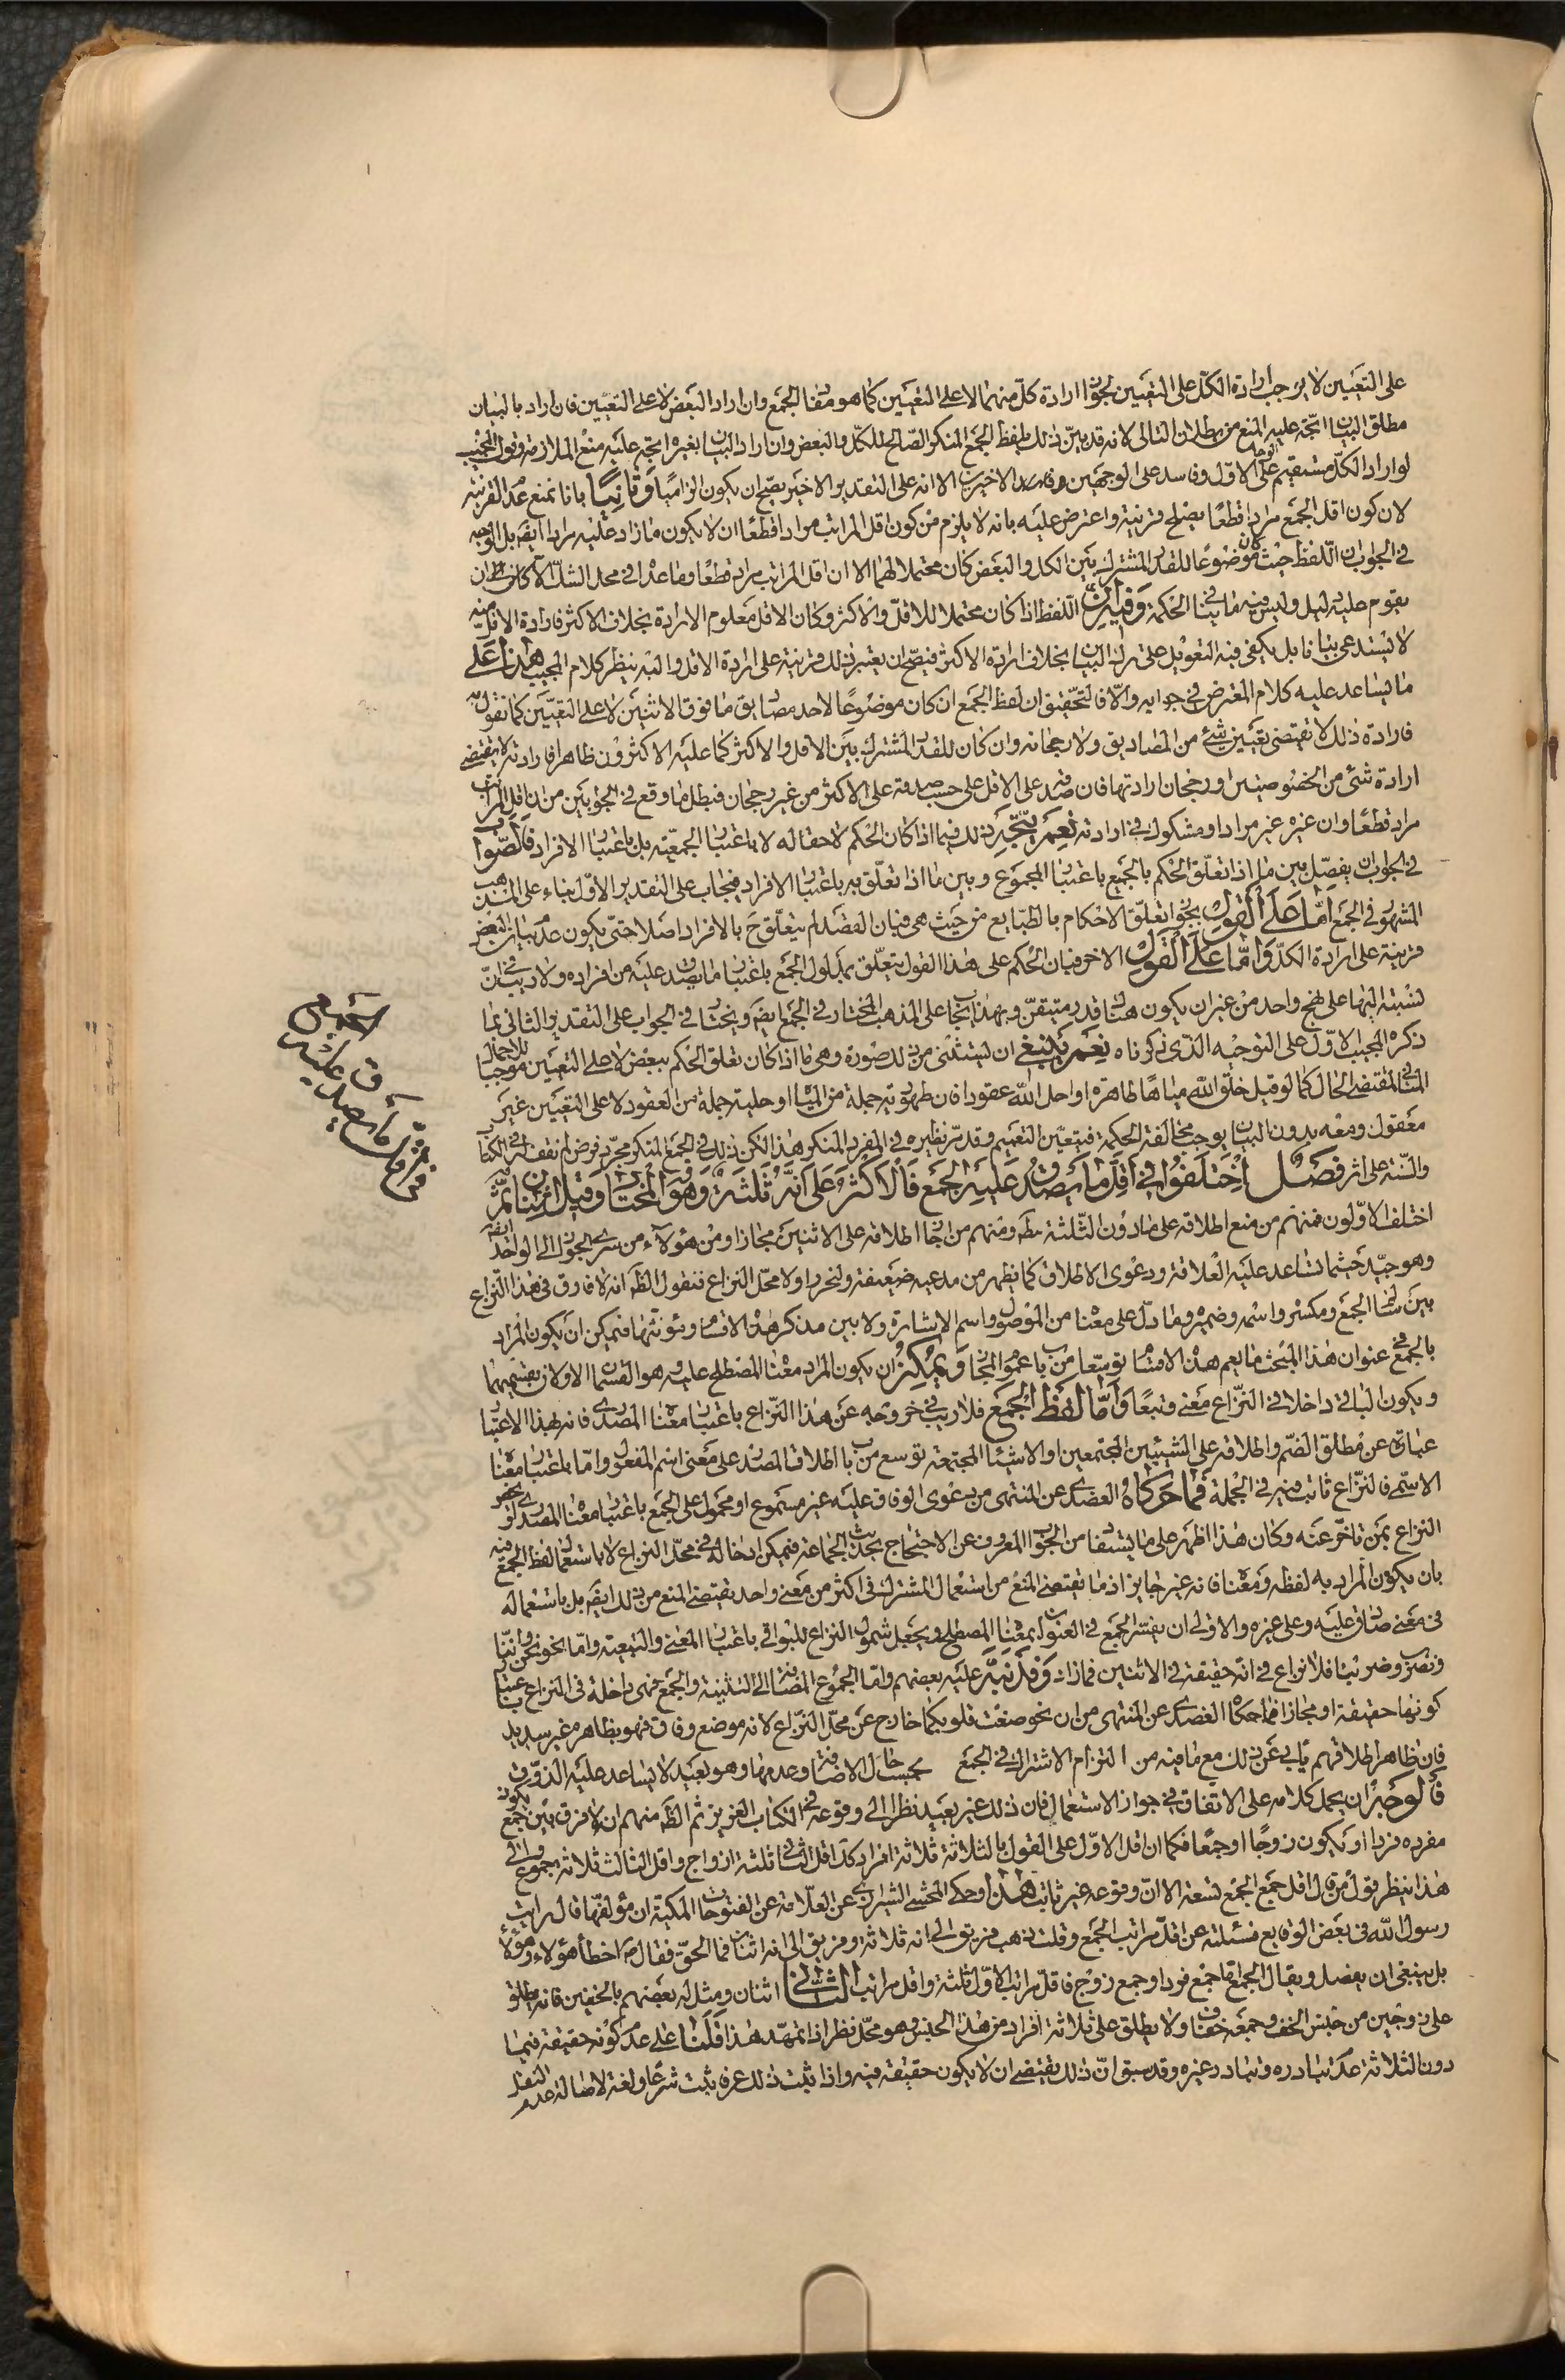 على التعيين لا يوجب ارادة الكل على التعيين لجواز ارادة كل منهما لا على التعيين كما هو مفاد الجمع وان اراد البعض لا على التعيين فان اراد بالبيان
مطلق البيان اتجه عليه المنع من بطلان التالى لانه قد بين ذلك بلفظ الجمع المنكر الصالح للكل والبعض وان اراد البيان بغيره اتجه عليه منع الملازمة وقول المجيب
لو اراد الكل مستقيم على الوجه الاول وفاسد على الوجهين الاخيرين الا انه على التقدير الاخير يصح ان يكون الزاميا وثانيا بانا نمنع عدم القرينة
لان كون اقل الجمع مرادا قطعا يصلح قرينة واعترض عليه بانه لا يلزم من كون اقل المراتب مرادا قطعا ان لا يكون ما زاد عليه مرادا ايضا بل الوجه
فى الجواب ان اللفظ حيث كان موضوعا للقدر المشترك بين الكل والبعض كان محتملا لهما الا ان اقل المراتب مراد قطعا وما عداه فى محل الشك الا ان
يقوم عليه دليل وليس فيه ما ينافى الحكمة وفيه ان اللفظ اذا كان محتملا للاقل والاكثر وكان الاقل معلوم الارادة بخلاف الاكثر فارادة الاقل منه
لا يستدعى بيانا بل يكفى فيه التعويل على ترك البيان بخلاف ارادة الاكثر فيصح ان يعتبر ذلك قرينة على ارادة الاقل واليه ينظر كلام المجيب هذا على
ما يساعد عليه كلام المعترض فى جوابه والا فالتحقيق ان لفظ الجمع ان كان موضوعا لاحد مصاديق ما فوق الاثنين لا على التعيين كما نقول به
فارادة ذلك لا تقتضى تعيين شئ من المصاديق ولا رجحانه وان كان للقدر المشترك بين الاقل والاكثر كما عليه الاكثرون ظاهرا فارادته لا تقتضى
ارادة شئ من الخصوصيتين او رجحان ارادتها فان صدقه على الاقل على حسب صدقه على الاكثر من غير رجحان فبطل ما وقع فى الجوابين من ان اقل المراتب
مراد قطعا وان غيره غير مراد او مشكوك فى ارادته نعم يتجه ذلك فيما اذا كان الحكم لاحقا له لا باعتبار الجمعية بل باعتبار الافراد فالصواب
فى الجواب ان يفصل بين ما اذا تعلق الحكم بالجمع باعتبار المجموع وبين ما اذا تعلق به باعتبار الافراد فيجاب على التقدير الاول بناء على المذهب
المشهور فى الجمع اما على القول بجواز تعلق الاحكام بالطبايع من حيث هى فبان القصد لم يتعلق ح بالافراد اصلا حتى يكون عدم بيان البعض
قرينة على ارادة الكل واما على القول الاخر فبان الحكم على هذا القول يتعلق بمدلول الجمع باعتبار ما يصدق عليه من افراده ولا ريب فى ان
نسبته اليها على نهج واحد من غير ان يكون هناك قدر متيقن وبهذا يجاب على المذهب المختار فى الجمع ايضا ويختار فى الجواب على التقدير الثانى بما
ذكره المجيب الاول على التوجيه الذى ذكرناه نعم ينبغى ان يستثنى من ذلك صورة وهى ما اذا كان تعلق الحكم ببعض لا على التعيين موجبا للاجمال
المنافى لمقتضى الحال كما لو قيل خلق الله مياها طاهرة او احل الله عقودا فان طهورية جملة من المياه او حلية جملة من العقود لا على التعيين غير
معقول ومعه بدون البيان يوجب مخالفة الحكمة فيتعين التعميم وقد مر نظيره فى المفرد المنكر هذا لكن ذلك فى الجمع المنكر مجرد فرض لم نقف فى الكتاب
والسنة على اثر فصل اختلفوا فى اقل ما يصدق عليه الجمع فالاكثر على انه ثلثة وهو المختار وقيل اثنان ثم
اختلف الاولون فمنهم من منع اطلاقه على ما دون الثلثة مطلقا ومنهم من اجاز اطلاقه على الاثنين مجازا ومن هؤلاء من سرى الجواز الى الواحد ايضا
وهو جيد حيثما تساعد عليه العلاقة ودعوى الاطلاق كما يظهر من مدعيه ضعيفة ولنحرر اولا محل النزاع فنقول الظاهر انه لا فارق فى هذا النزاع
بين سالم الجمع ومكسره واسمه وضميره وما دل على معناه من الموصول واسم الاشارة ولا بين مذكر هذه الاقسام ومؤنثها فيمكن ان يكون المراد
بالجمع فى عنوان هذا المبحث ما يعم هذه الاقسام توسعا من باب عموم المجاز ويمكن ان يكون المراد معناه المصطلح عليه وهو القسمان الاولان بقسميهما
ويكون الباقى داخلا فى النزاع معنى وتبعا واما لفظ الجمع فلا ريب فى خروجه عن هذا النزاع باعتبار معناه المصدرى فانه بهذا الاعتبار
عبارة عن مطلق الضم واطلاقه على الشيئين المجتمعين او الاشياء المجتمعة توسع من باب اطلاق المصدر على معنى اسم المفعول واما باعتبار معناه
الاسمى فالنزاع ثابت فيه فى الجملة فما حكاه العضدى عن المنتهى من دعوى الوفاق عليه غير مسموع او محمول على الجمع باعتبار معناه المصدرى او يخص
النزاع بمن تاخر عنه وكان هذا اظهر على ما يستفاد من الجواب المعروف عن الاحتجاج بحديث الجماعة فيمكن ادخاله فى محل النزاع لا باستعمال لفظ الجمع فيه
بان يكون المراد به لفظه ومعناه فانه غير جايز اذ ما يقتضى المنع من استعمال المشترك فى اكثر من معنى واحد يقتضى المنع من ذلك ايضا بل باستعماله
فى معنى صادق عليه وعلى غيره والاولى ان يفسر الجمع فى العنوان بمعناه المصطلح ويجعل شمول النزاع للبواقى باعتبار المعنى والتبعية واما نحو نحن وانا
ونصر وضربنا فلا نزاع فى انه حقيقة فى الاثنين فما زاد وقد نبه عليه بعضهم واما الجموع المضافة الى التثنية والجمع فهى داخلة فى النزاع باعتبار
كونها حقيقة او مجازا فما حكاه العضدى عن المنتهى من ان نحو صغت قلوبكما خارج عن محل النزاع لانه موضع وفاق فهو بظاهره غير سديد
فان ظاهر اطلاقهم يابى عن ذلك مع ما فيه من التزام الاشتراك فى الجمع بحسب حال الاضافة وعدمها وهو بعيد لا يساعد عليه الذوق
فالوجه ان يحمل كلامه على الاتفاق فى جواز الاستعمال فان ذلك غير بعيد نظرا الى وقوعه فى الكتاب العزيز ثم الظاهر منهم ان لا فرق بين جمع يكون
مفرده فردا او يكون زوجا او جمعا فكما ان اقل الاول على القول بالثلاثة ثلاثة افراد كذا اقل الثانى ثلثة ازواج واقل الثالث ثلاثة جموع والى
هذا ينظر قول من قال اقل جمع الجمع تسعة الا ان وقوعه غير ثابت هذا وحكى المحشى الشيرازى عن العلامة عن الفتوحات المكية ان مؤلفها قال رايت
رسول الله فى بعض الوقايع فسئلته عن اقل مراتب الجمع وقلت ذهب فريق الى انه ثلاثة وفريق الى انه اثنان فما الحق فقال ص اخطأ هؤلاء وهؤلاء
بل ينبغى ان يفصل ويقال الجمع اما جمع فرد او جمع زوج فاقل مراتب الاول ثلثة واقل مراتب الثانى اثنان ومثل له بعضهم بالخفين فانه يطلق
على زوجين من جنس الخف وجمعه خفاف ولا يطلق على ثلاثة افراد من هذا الجنس وهو محل نظر اذا تمهد هذا فلنا على عدم كونه حقيقة فيما
دون الثلاثة عدم تبادره وتبادر غيره وقد سبق ان ذلك يقتضى ان لا يكون حقيقة فيه واذا ثبت ذلك عرفا ثبت شرعا ولغة لاصالة عدم النقل